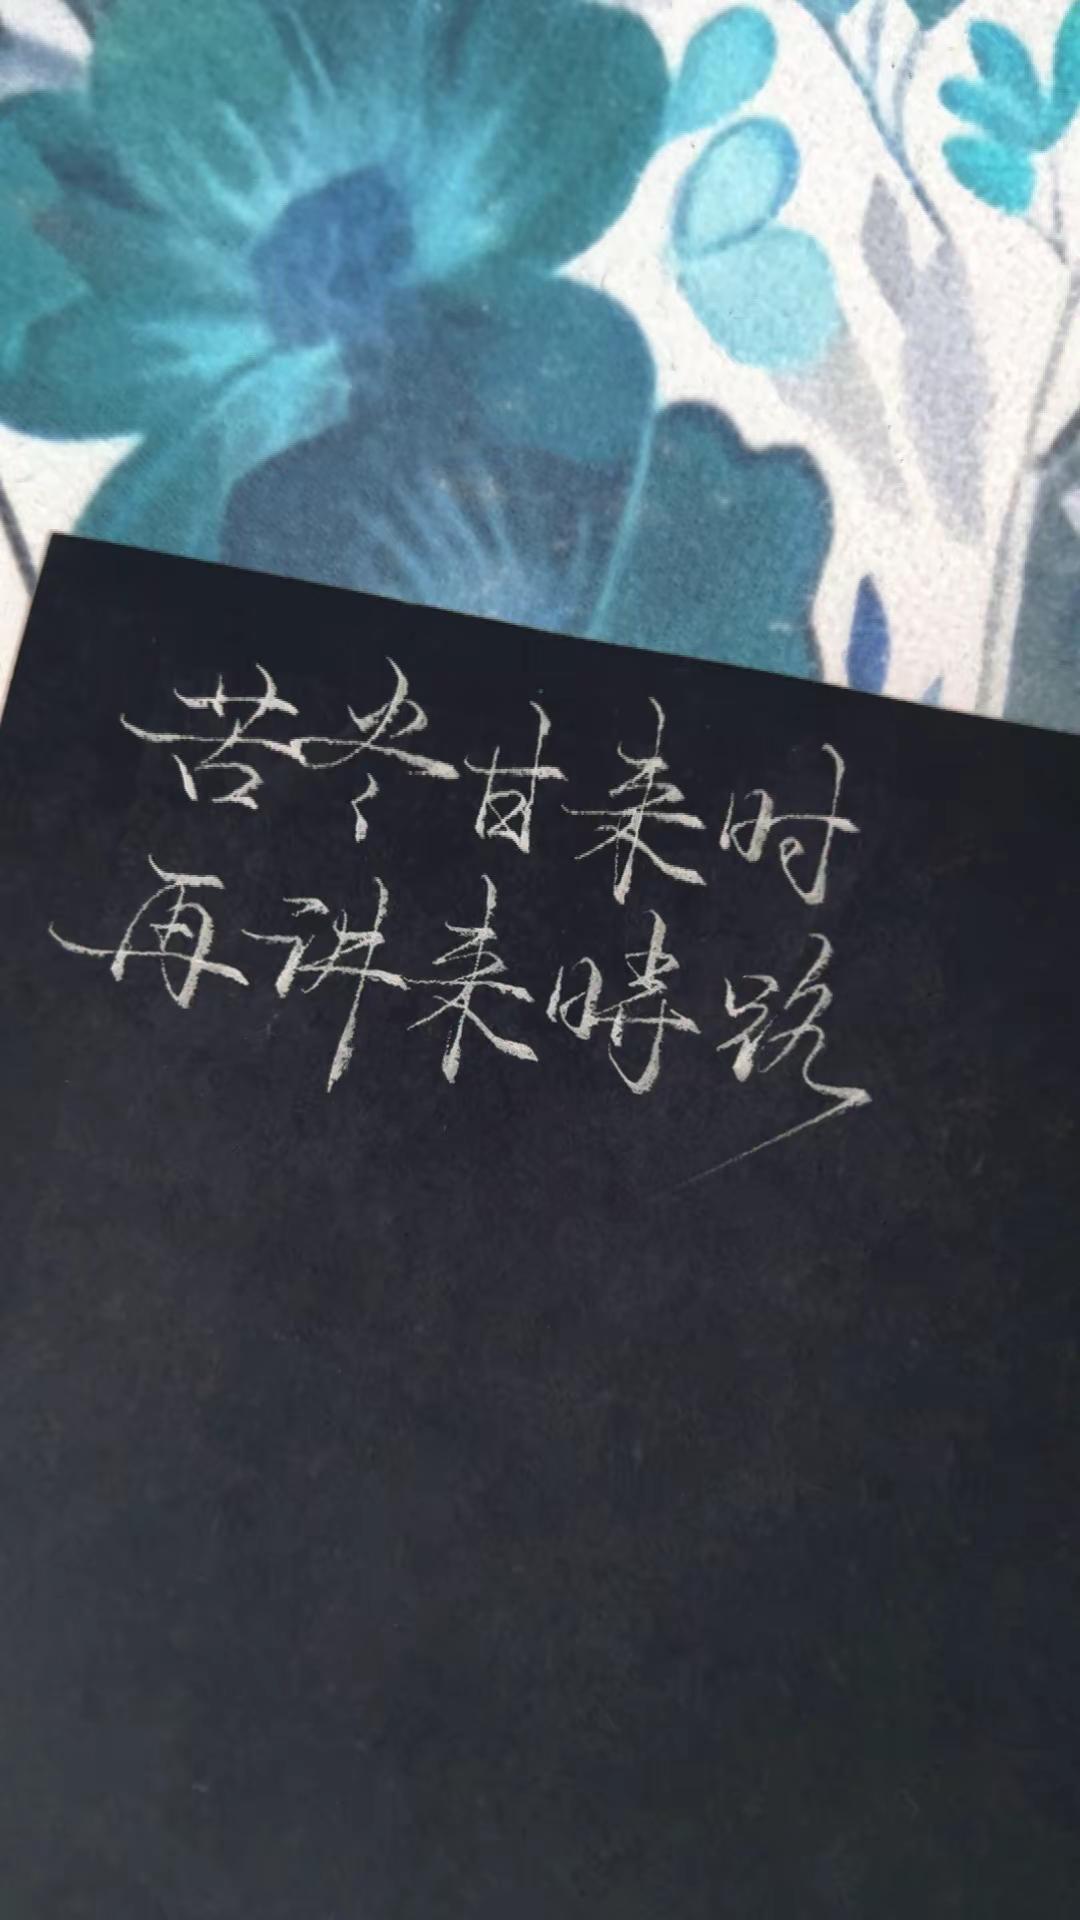 苦尽甘来时
再讲来時路